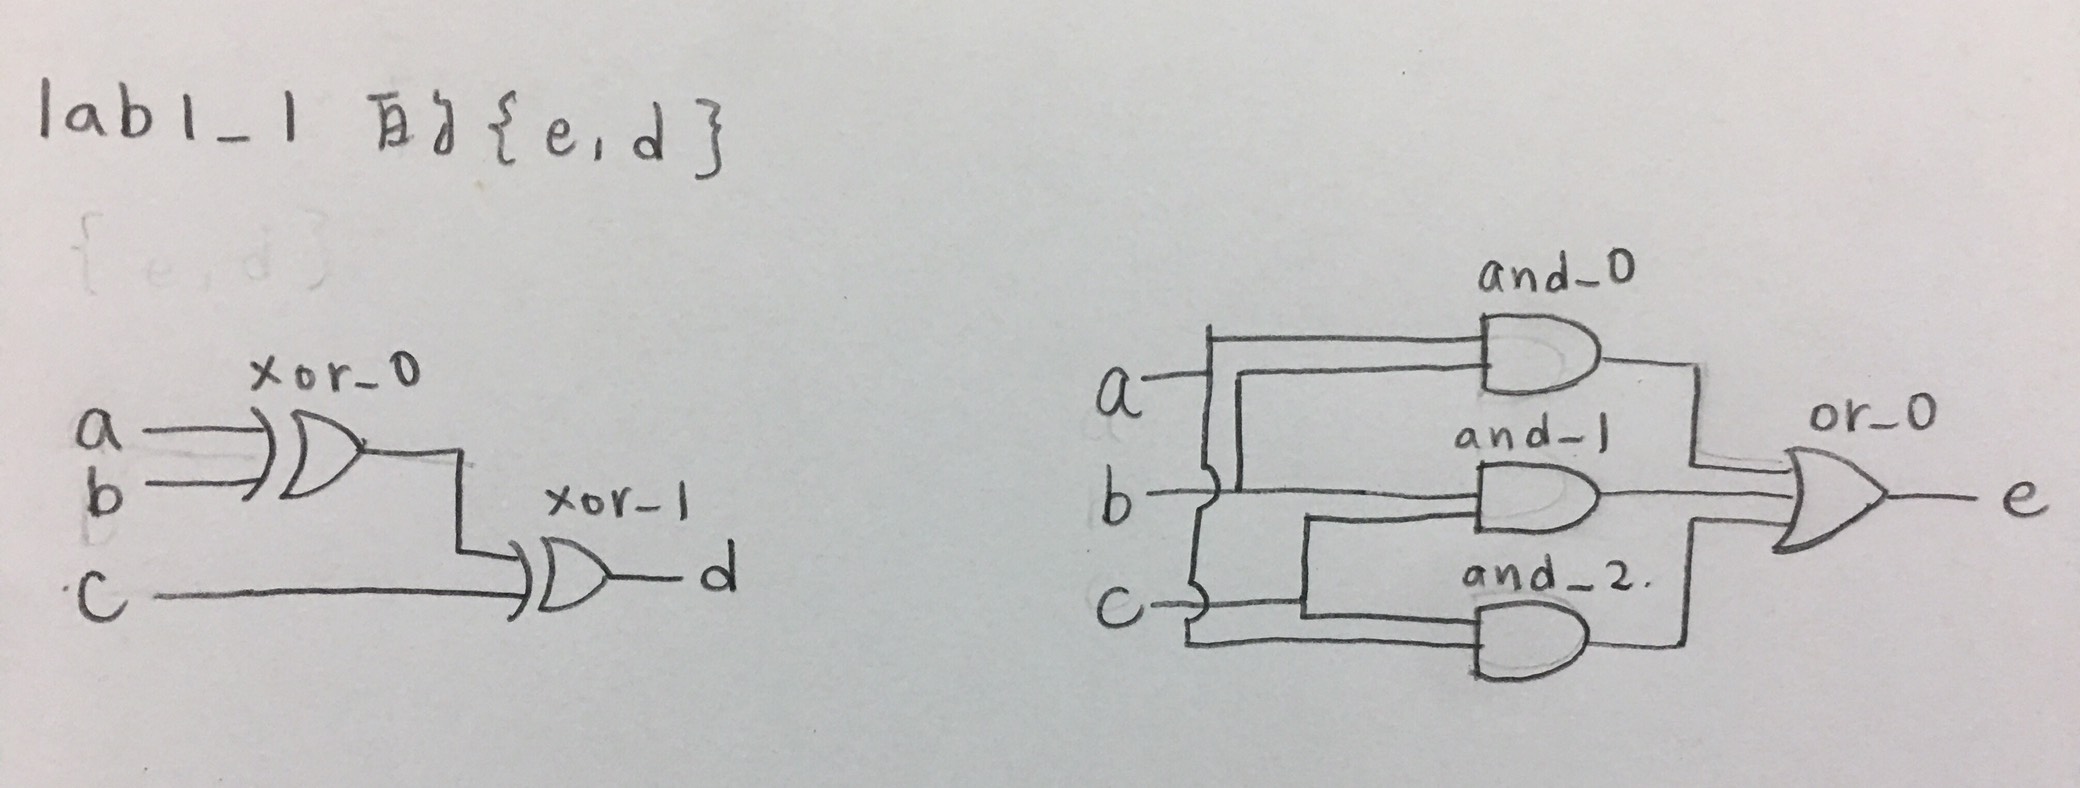 lab1_1 的 {e, d}
{e, d}
xor_0
a
b
xor_1
c
d
and_0
a
and_1
or_0
b
e
and_2.
c